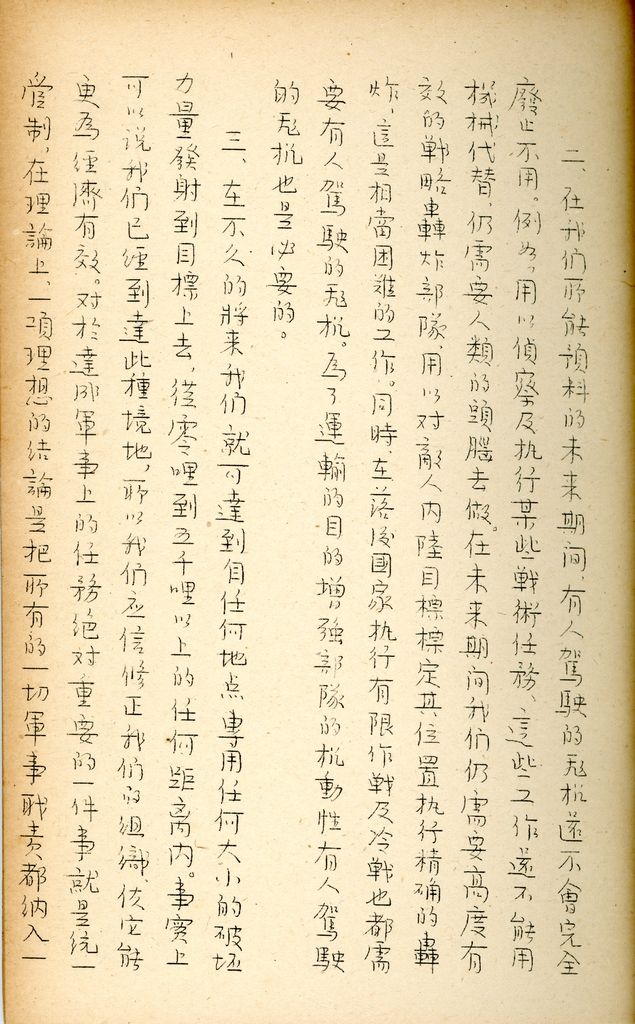 二、在我们所能預料的未来期间,有人駕駛的飛机還不會完全
廢止不用。例如,用以偵察及执行某些戰術任務、這些工作還不能用
機械代替,仍需要人類的頭腦去做。在未来期间我们仍需要高度有
效的戰略轟炸部隊,用以对敵人内陸目標標定其位置执行精确的轟
炸,這是相當困難的工作。同時,在落後國家执行有限作戰及冷戰也都需
要有人駕駛的飛机。為了運輸的目的增強部隊的机動性有人駕駛
的飛机也是必要的。
三、在不久的將来我们就可達到自任何地点專用任何大小的破坏
力量發射到目標上去,從零哩到五千哩以上的任何距离内。事实上
可以说我们已經到達此種境地,所以我们应信修正我们的組織,使它能
更為經濟有效。对於達成軍事上的任務絕对重要的一件事就是統一
管制,在理論上,一項理想的結論是把所有的一切軍事职责都納入一